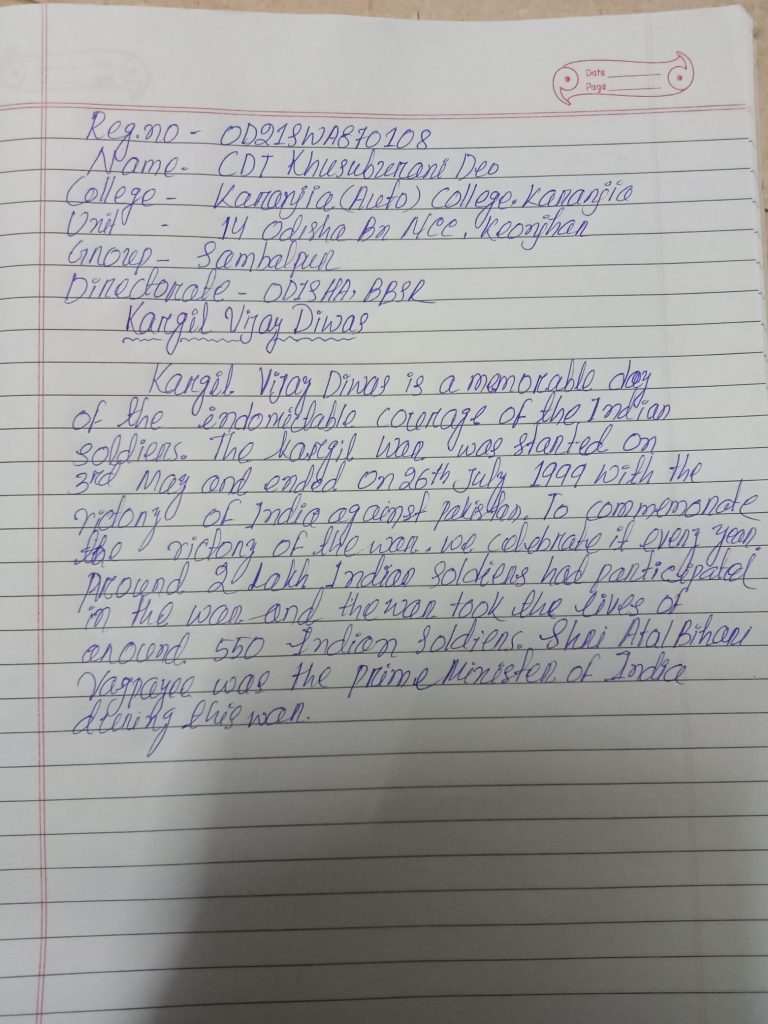 Date
Page
Reg.no - OD21SWA870108
Name- CDT Khusubremani Deo
College - Karanjia (Auto) College, Karanjia
Unit - 14 Odisha Bn NCC, Keonjhar
Group- Sambalpur
Directorate - ODISHA, BBSR
Kargil Vijay Diwas
Kargil Vijay Diwas is a memorable day
of the indomitable courage of the Indian
soldiers. The kargil war was started on
3rd May and ended on 26th July 1999 with the
victory of India against pakistan. To commemorate
the victory of the war. we celebrate it every year.
Around 2 Lakh Indian soldiers had participated
in the war and the war took the lives of
around 550 Indian soldiers. Shri Atal Bihari
Vajpayee was the prime Minister of India
during this war.